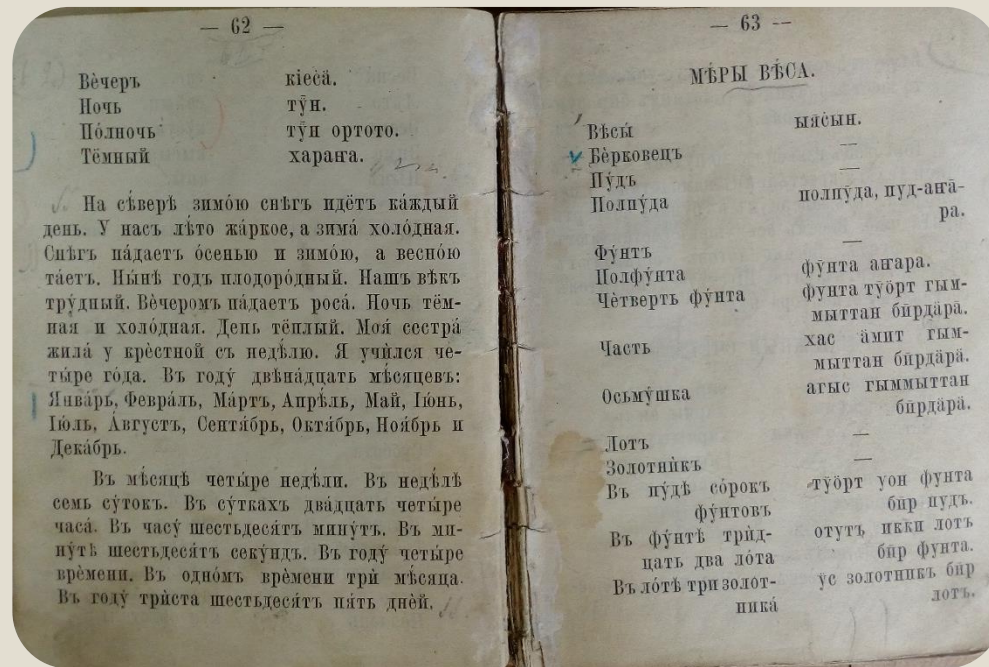 — 62 —
Вѐчеръ кіӓсӓ̄.
Ночь тӯн.
По́лночь тӯн ортото.
Тёмный хараҥа.
На сѣ́верѣ зимо́ю снѣгъ идётъ ка́ждый
день. У насъ лѣ́то жа́ркое, а зима́ холо́дная.
Снѣгъ па́даетъ о́сенью и зимо́ю, а весно́ю
та́етъ. Ны́нѣ годъ плодоро́дный. Нашъ вѣкъ
тру́дный. Вѐчеромъ па́даетъ роса́. Ночь тём-
ная и холо́дная. День тёплый. Моя́ сестра́
жила́ у крѐстной съ недѣ́лю. Я учи́лся че-
ты́ре го́да. Въ году́ двѣна́дцать мѣ́сяцевъ:
Янва́рь, Февра́ль, Ма́ртъ, Апрѣ́ль, Май, Ію́нь,
Ію́ль, А́вгустъ, Сентя́брь, Октя́брь, Ноя́брь и
Дека́брь.
Въ мѣ́сяцѣ четы́ре недѣ́ли. Въ недѣ́лѣ
семь су́токъ. Въ су́ткахъ два́дцать четы́ре
часа́. Въ часу́ шестьдеся́тъ мину́тъ. Въ ми-
ну́тѣ шестьдеся́тъ секу́ндъ. Въ году́ четы́ре
врѐмени. Въ одно́мъ врѐмени три́ мѣ́сяца.
Въ году́ три́ста шестьдеся́тъ пя́ть дне́й.
— 63 —
МѢ́РЫ ВѢ́СА.
Вѣсы́ ыясын.
Бѐрковецъ —
Пу́дъ —
Полпу́да полпу́да, пуд-аҥа̄-
ра.
Фу́нтъ —
Полфу́нта фӯнта аҥара.
Чѐтверть фу́нта фӯнта тӱӧрт гым-
мыттан бӣрдӓрӓ̄.
Часть хас ӓмит гым-
мыттан бӣрдӓрӓ̄.
Осьму́шка агыс гыммыттан
бӣрдӓрӓ̄.
Лотъ —
Золотни́къ —
Въ пу́дѣ со́рокъ тӱӧрт уон фунта
фу́нтовъ бӣр пудъ.
Въ фу́нтѣ три́д- отутъ икки лотъ
цать два ло́та бӣр фунта.
Въ ло́тѣ три золот- ӱс золотникъ бӣр
ника́ лотъ.